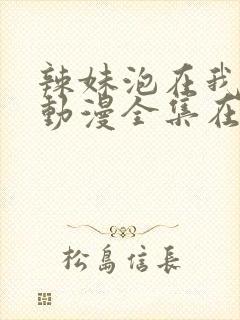 辣妹泡在我
動漫全集在
松島信長